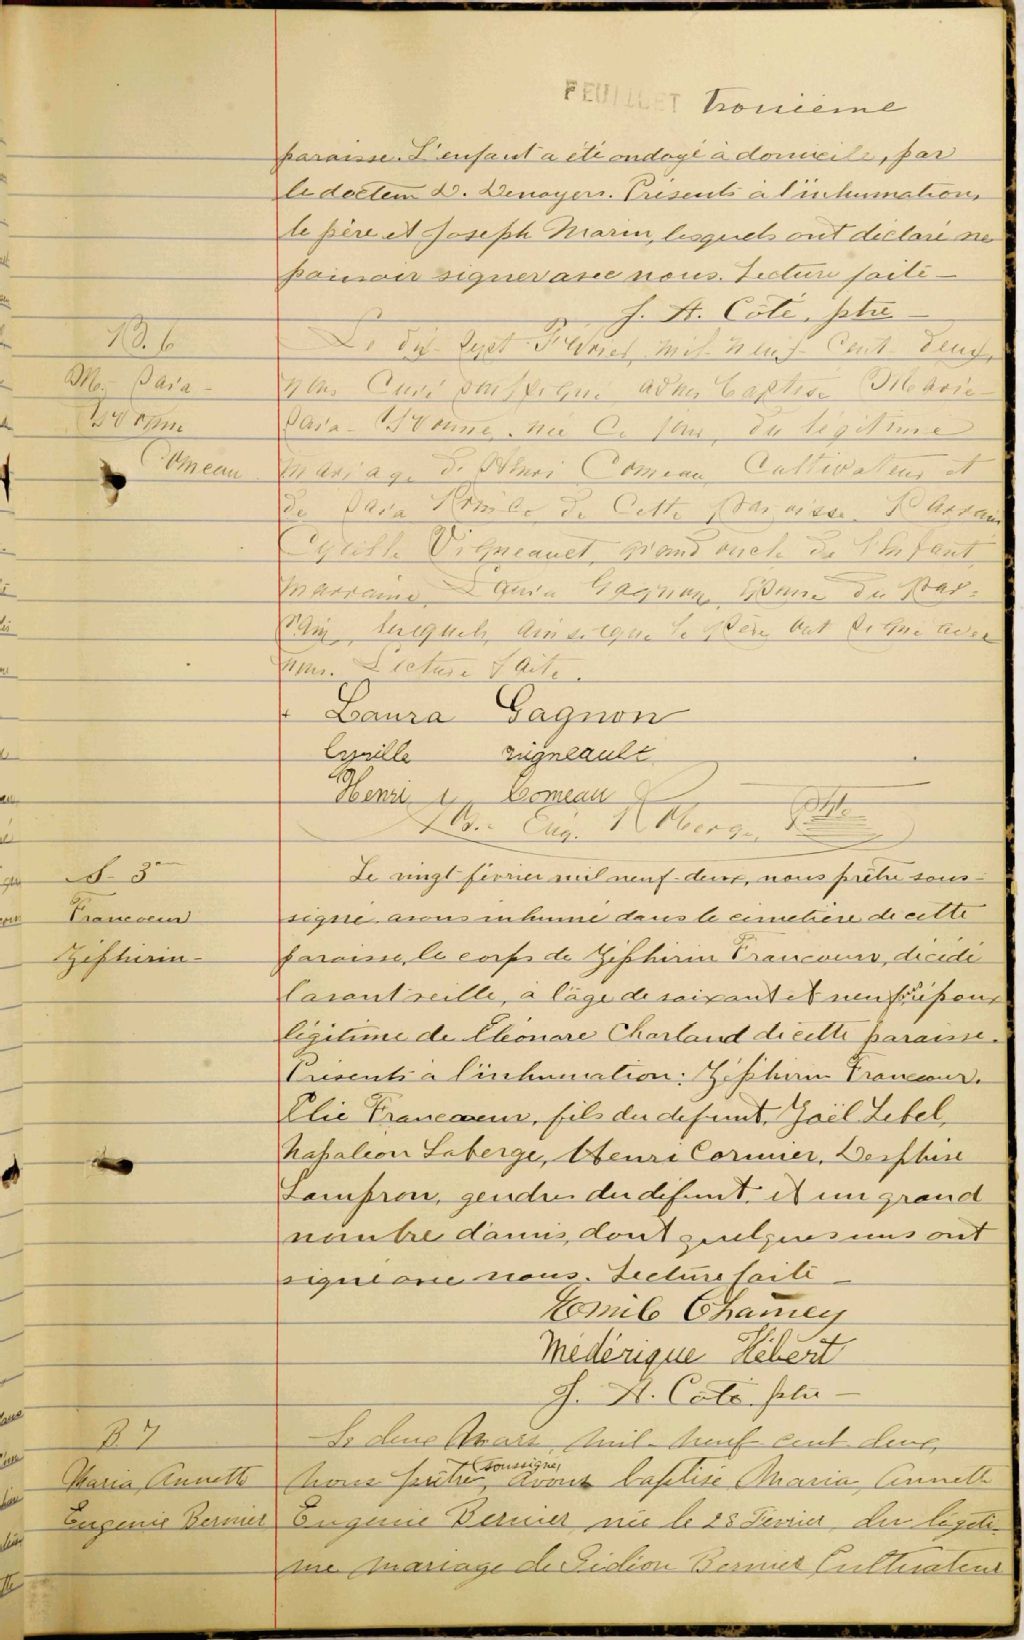 FEUILLET troisième
paroisse. L'enfant a été ondoyé à domicile, par
le docteur D. Desnoyers. Présents à l'inhumation,
le père et Joseph Marin, lesquels ont déclaré ne
pouvoir signer avec nous. Lecture faite —
J. A. Côté, ptre —
B. 6
Le dix-sept Février mil neuf cent deux,
M. Sara-
nous Curé soussigné avons baptisé Marie-
Yvonne
Sara-Yvonne, née ce jour, du légitime
Comeau
mariage de Henri Comeau, Cultivateur et
de Sara de cette paroisse. Parrain
Cyrille Vigneault, grand oncle de l'enfant,
marraine, Laura Gagnon, épouse du par-
rain, lesquels, ainsi que le père ont signé avec
nous. Lecture faite.
+ Laura Gagnon
Cyrille vigneault
Henri Comeau
Eug. Roberge, Ptre
S- 3me
Le vingt-février mil neuf-deux, nous prêtre sous-
Francoeur
signé avons inhumé dans le cimetière de cette
Zéphirin-
paroisse, le corps de Zéphirin Francoeur, décédé
l'avant veille, à l'âge de soixant et neuf époux
légitime de Eléonore Charland de cette paroisse.
Présents à l'inhumation: Zéphirin Francoeur,
Elie Francoeur, fils du defunt, Joël Lebel,
Napoléon Laberge, Henri Cormier, Delphise
Lampron, gendres du défunt, et un grand
nombre d'amis, dont quelques uns ont
signé avec nous. Lecture faite —
Emile
Médérique Hébert
J. A. Côté ptre —
B 7
Le deux Mars, mil-neuf cent deux,
Maria, Annette
nous prêtre, soussigné, avons baptisé Maria, Annette
Eugenie Bernier
Eugenie Bernier, née le 28 Février, du légiti-
me mariage de Gidéon Bernier Cultivateur